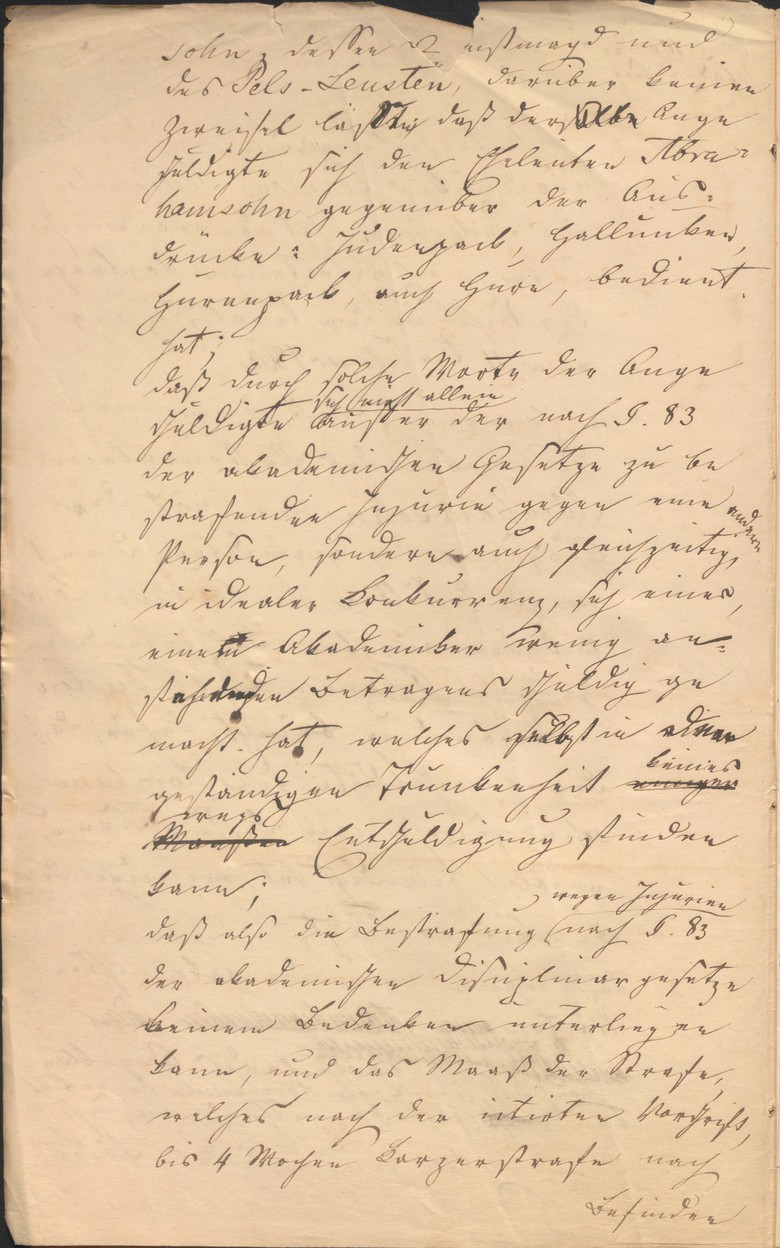 sohn, dessen Dienstmagd und
des Pels-Leusten, darüber keinen
Zweifel läßt, daß derselbe Ange
schuldigte sich den Eheleuten Abra-
hamsohn gegenüber der Aus-
drücke: Judenpack, Hallunken,
Hurenpack, auch Hure, bedient
hat;
daß durch solche Worte der Ange
schuldigte sich nicht allein außer der nach §. 83
der akademischen Gesetze zu be
strafenden Injurie gegen eine andere
Person, sondern auch gleichzeitig,
in idealer Konkurrenz, sich eines,
einem Akademiker wenig an-
stehenden Betragens schuldig ge
macht hat, welches selbst in einer
geständigen Trunkenheit einiger keines
Maaßen wegs Entschuldigung finden
kann;
daß also die Bestrafung wegen Injurien nach §. 83
der akademischen Disciplinargesetze
keinem Bedenken unterliegen
kann, und das Maaß der Strafe,
welches nach der citirten Vorschrift,
bis 4 Wochen Karzerstrafe nach
Befinden